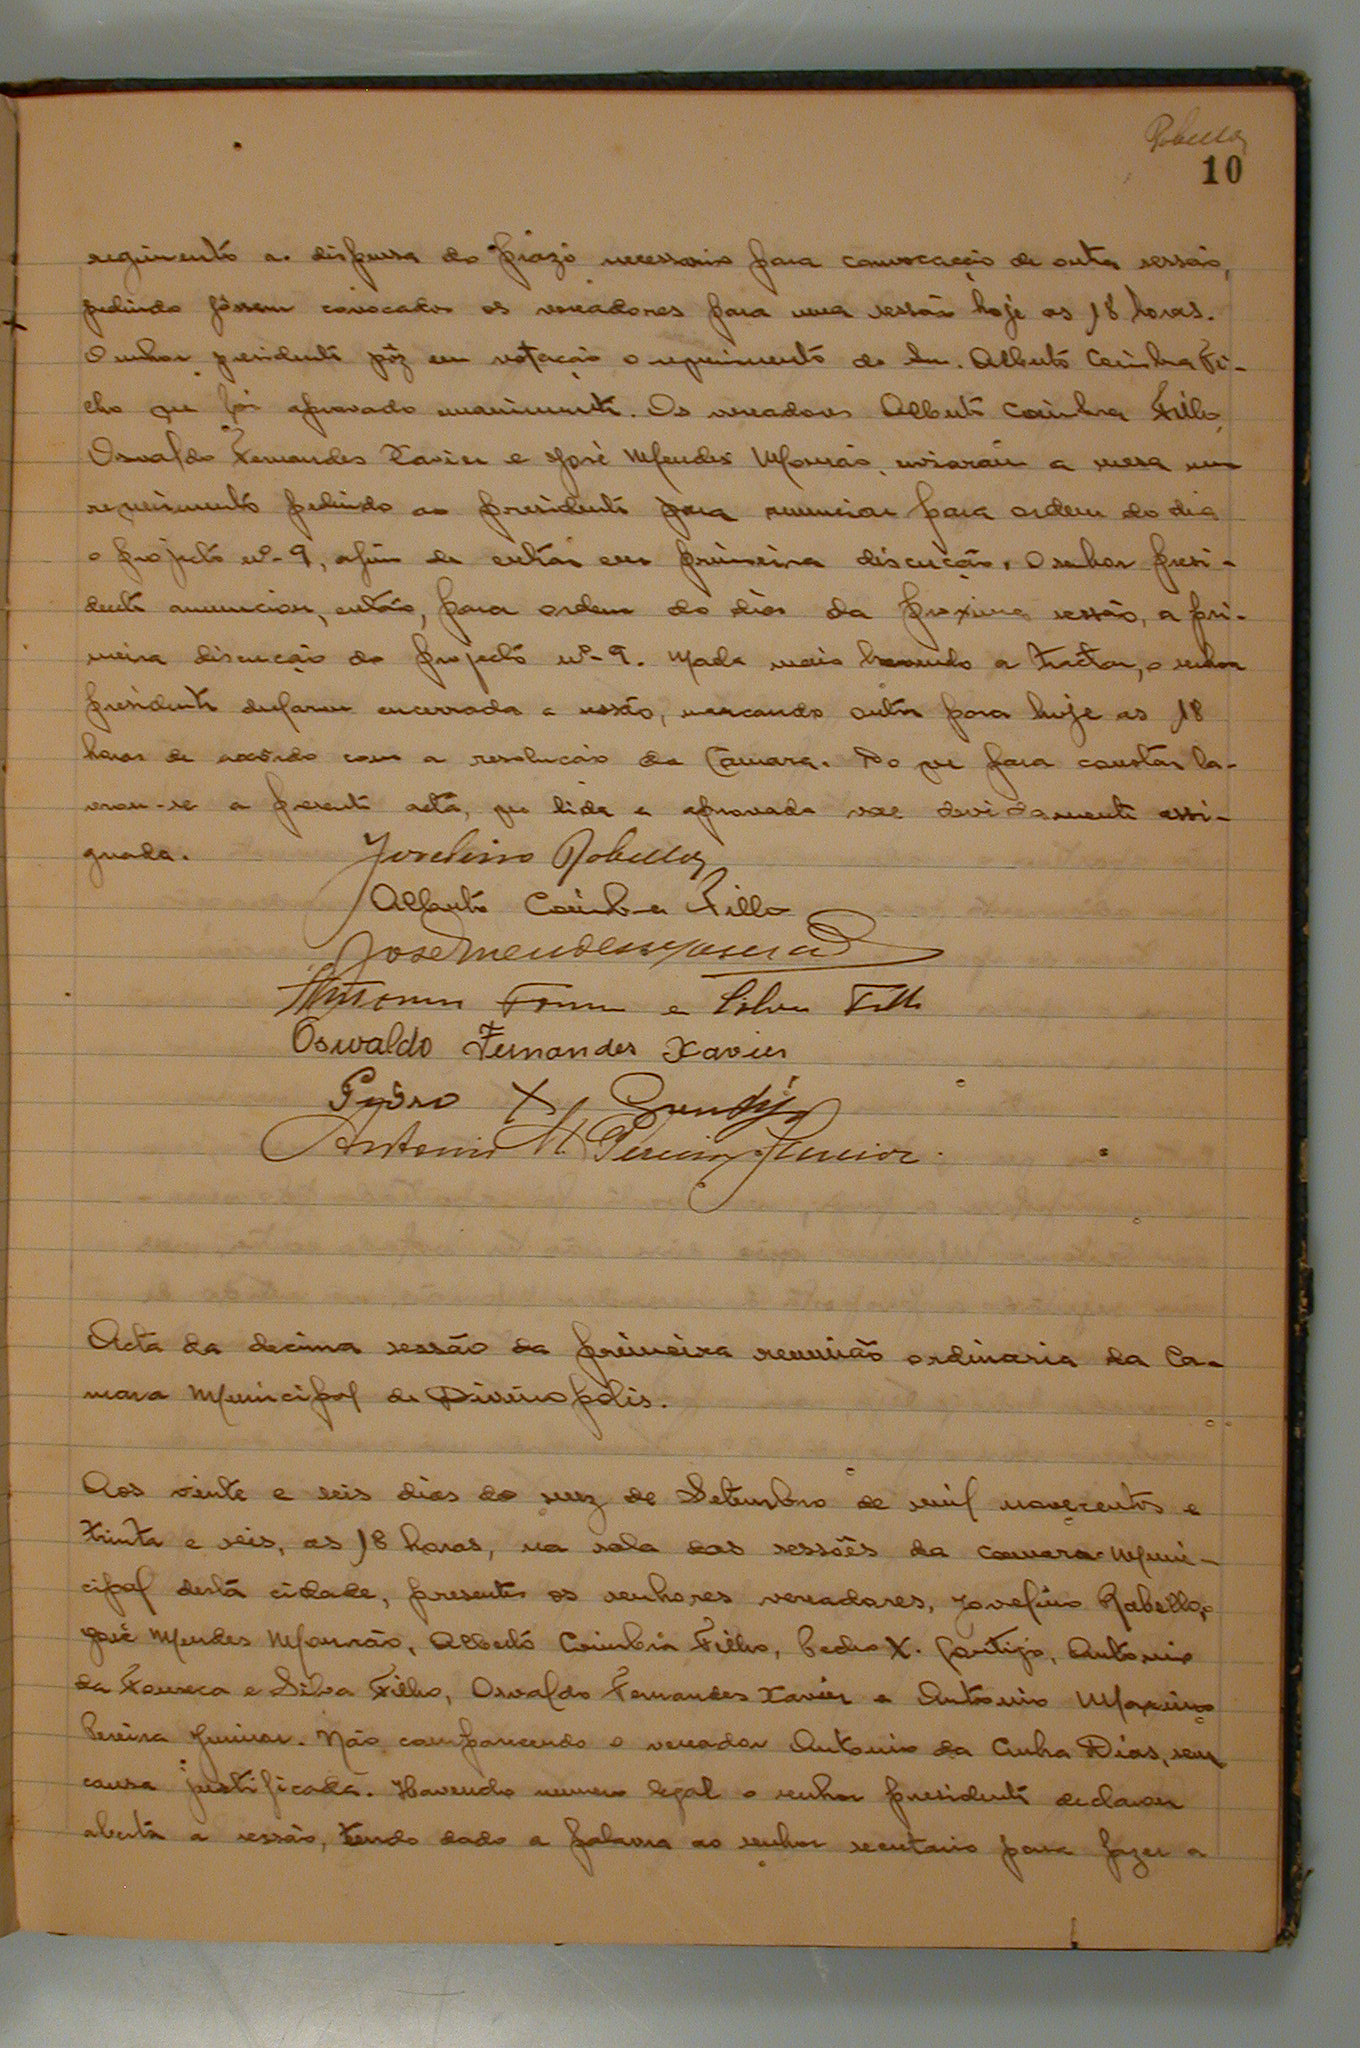 Rabello
10
regimento a dispensa do prazo necessario para convocação de outra sessão,
pedindo fôssem covocados os vereadores para uma sessão hoje as 18 horas.
O senhor presidente pôz em votação o requimento do snr. Alberto Coimbra Fi-
lho que foi aprovado unanimimente. Os vereadores Alberto Coimbra Filho,
Osvaldo Fernandes Xavier e José Mendes Mourão, enviarám a mesa um
requeimento pedindo ao presidente para anunciar para ordem do dia
o projecto nº-9, afim de entrar em primeira discução. O senhor presi-
dente anunciou, então, para ordem do dia da proxima sessão, a pri-
meira discução do projecto nº-9. Nada mais havendo a tractar, o senhor
presidente declarou encerrada a sessão, marcando outra para hoje as 18
horas de acôrdo com a resolução da Camara. Do que para constar la-
vrou-se a presente acta, que lida e aprovada vae devidamente assi-
gnada.
Jovelino Rabello
Alberto Coimbra Filho
José Mendes Mourão
Antonio Fonseca e Silva Filho
Oswaldo Fernandes Xavier
Pedro X Gontijo
Antonio M. Pereira Junior.
Acta da decima sessão da primeira reunião ordinaria da Ca-
mara Municipal de Divinopolis.
Aos vinte e seis dias do mez de Setembro de mil novecentos e
trinta e seis, as 18 horas, na sala das sessões da camara Muni-
cipal desta cidade, presente os senhores vereadores, Jovelino Rabello,
José Mendes Mourão, Alberto Coimbra Filho, Pedro X. Gontijo, Antonio
da Fonseca e Silva Filho, Osvaldo Fernandes Xavier e Antonio Maximo
Pereira Junior. Não comparecendo o vereador Antonio da Cunha Dias, sem
causa justificada. Havendo numero legal o senhor presidente declarou
aberta a sessão, tendo dado a palavra ao senhor secretario para fazer a